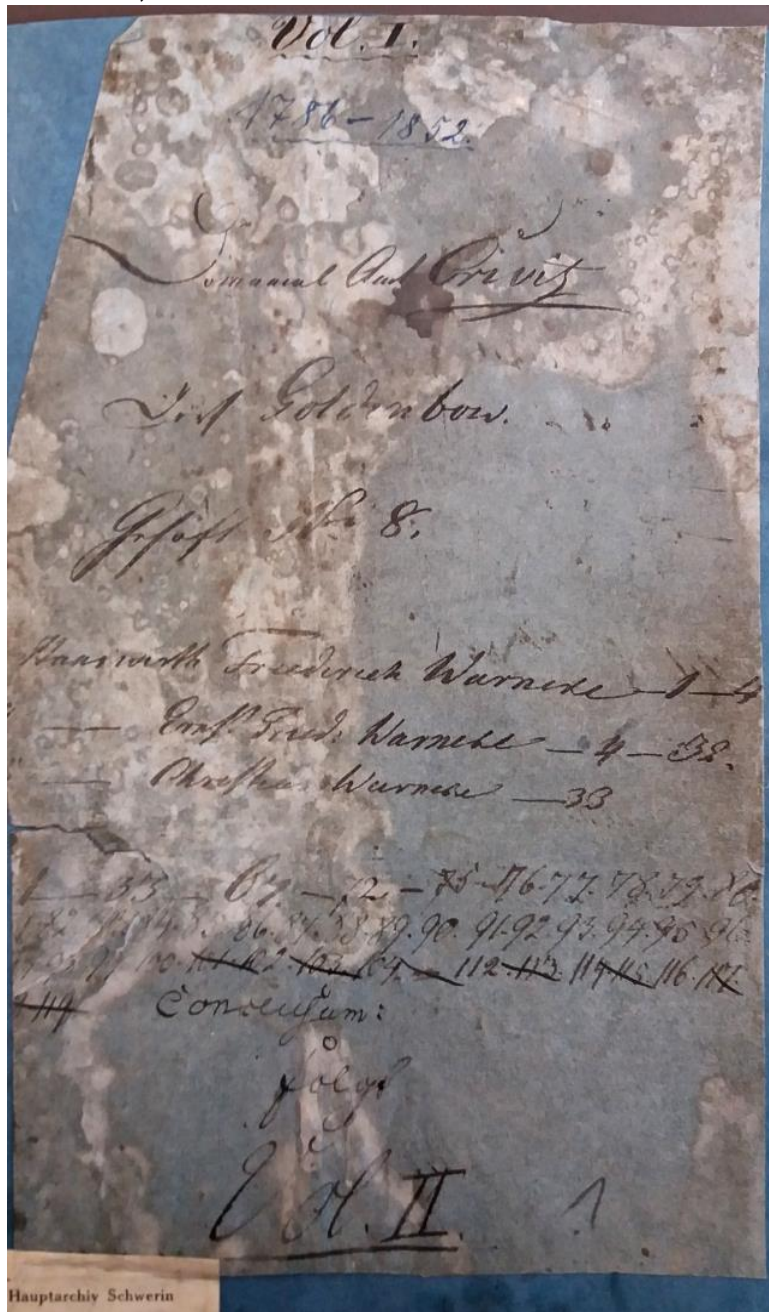 Vol. I.
1786–1852.
Domanial Amt Crivitz
Dorf Goldenbow.
Gehöft No 8.
Hauswirth Friederich Warneke — 1–4
" — Ernst Fried. Warneke — 4–32.
" — Christian Warneke — 33
1 — 33 — 67 — 72 — 75 76. 77. 78. 79. 80.
82 86. 87. 88. 89. 90. 91. 92. 93. 94. 95. 96
100. 101. 102. 103. 104. — 112. 113. 114 115. 116. 117.
119 Conclusum:
folgt
Vol. II. 1
Hauptarchiv Schwerin